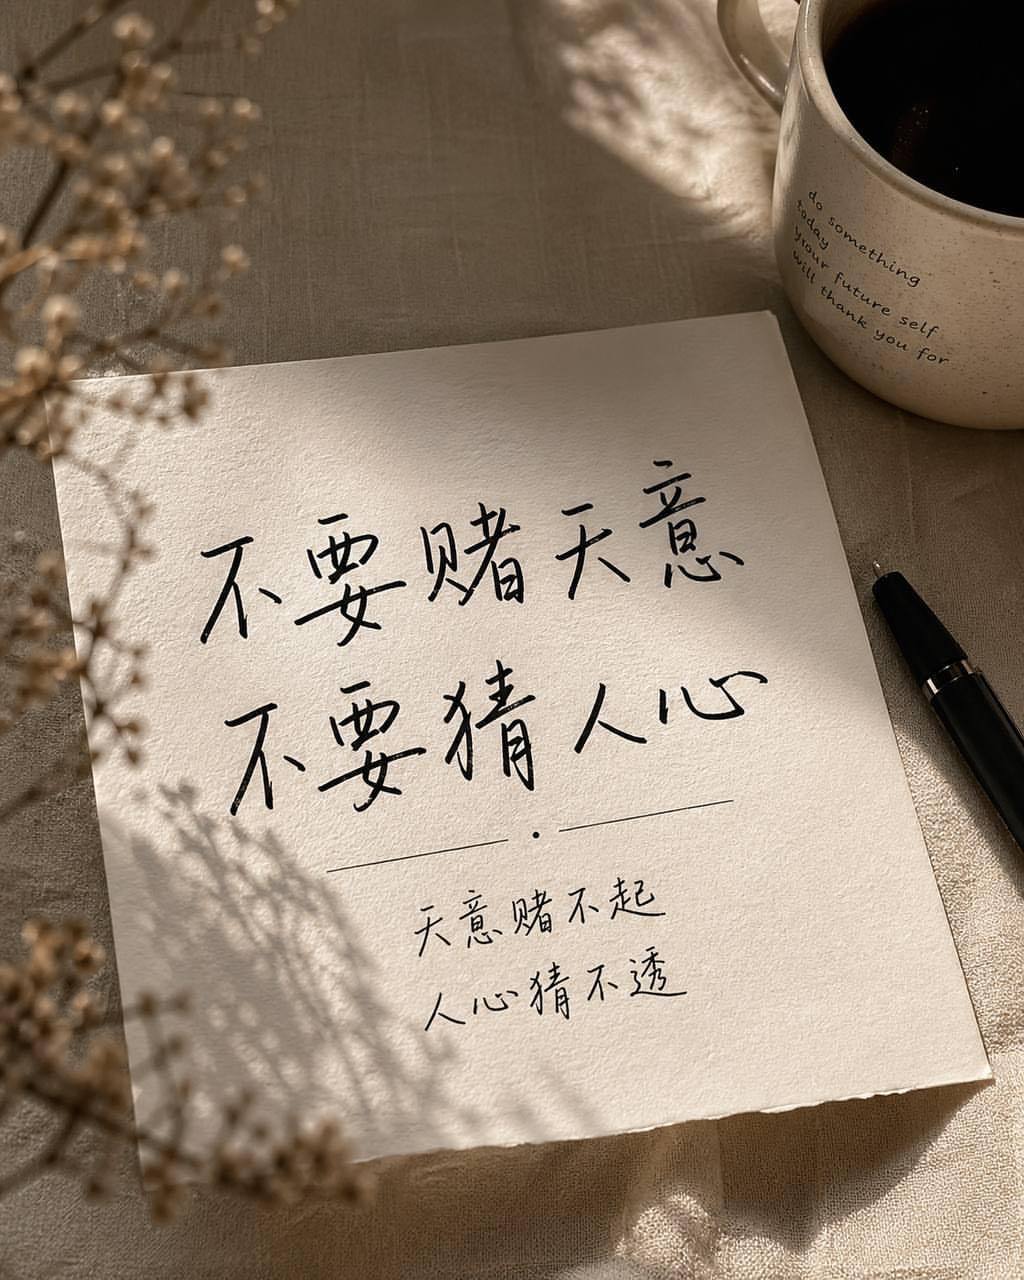 do something
today
your future self
will thank you for
不要赌天意
不要猜人心
天意赌不起
人心猜不透